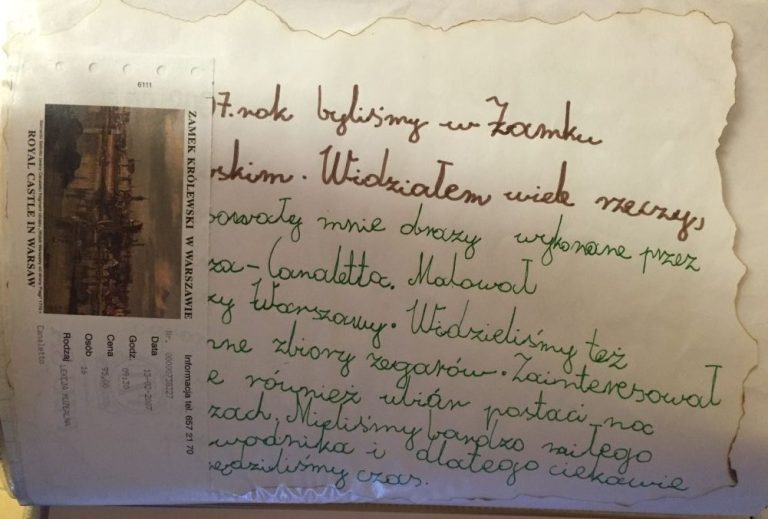 6111
ZAMEK KRÓLEWSKI W WARSZAWIE
ROYAL CASTLE IN WARSAW
Informacja tel. 657 21 70
Nr. 00000738227
Data 13-02-2007
Godz. 09:30
Cena 95,00
Osób 16
Rodzaj LEKCJA MUZEALNA
Canaletto
07. rok byliśmy w Zamku
wskim. Widziałem wiele rzeczy,
sowały mnie obrazy wykonane przez
za-Canaletta. Malował
zy Warszawy. Widzieliśmy też
nne zbiory zegarów. Zainteresował
e również ubiór postaci na
zach. Mieliśmy bardzo miłego
wodnika i dlatego ciekawie
ędziliśmy czas.